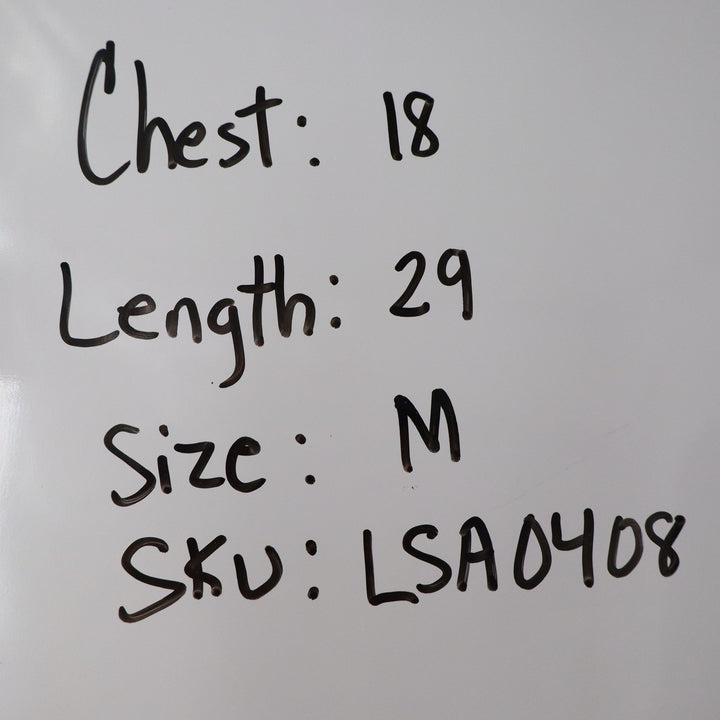 Chest: 18
Length: 29
Size: M
SKU: LSA0408